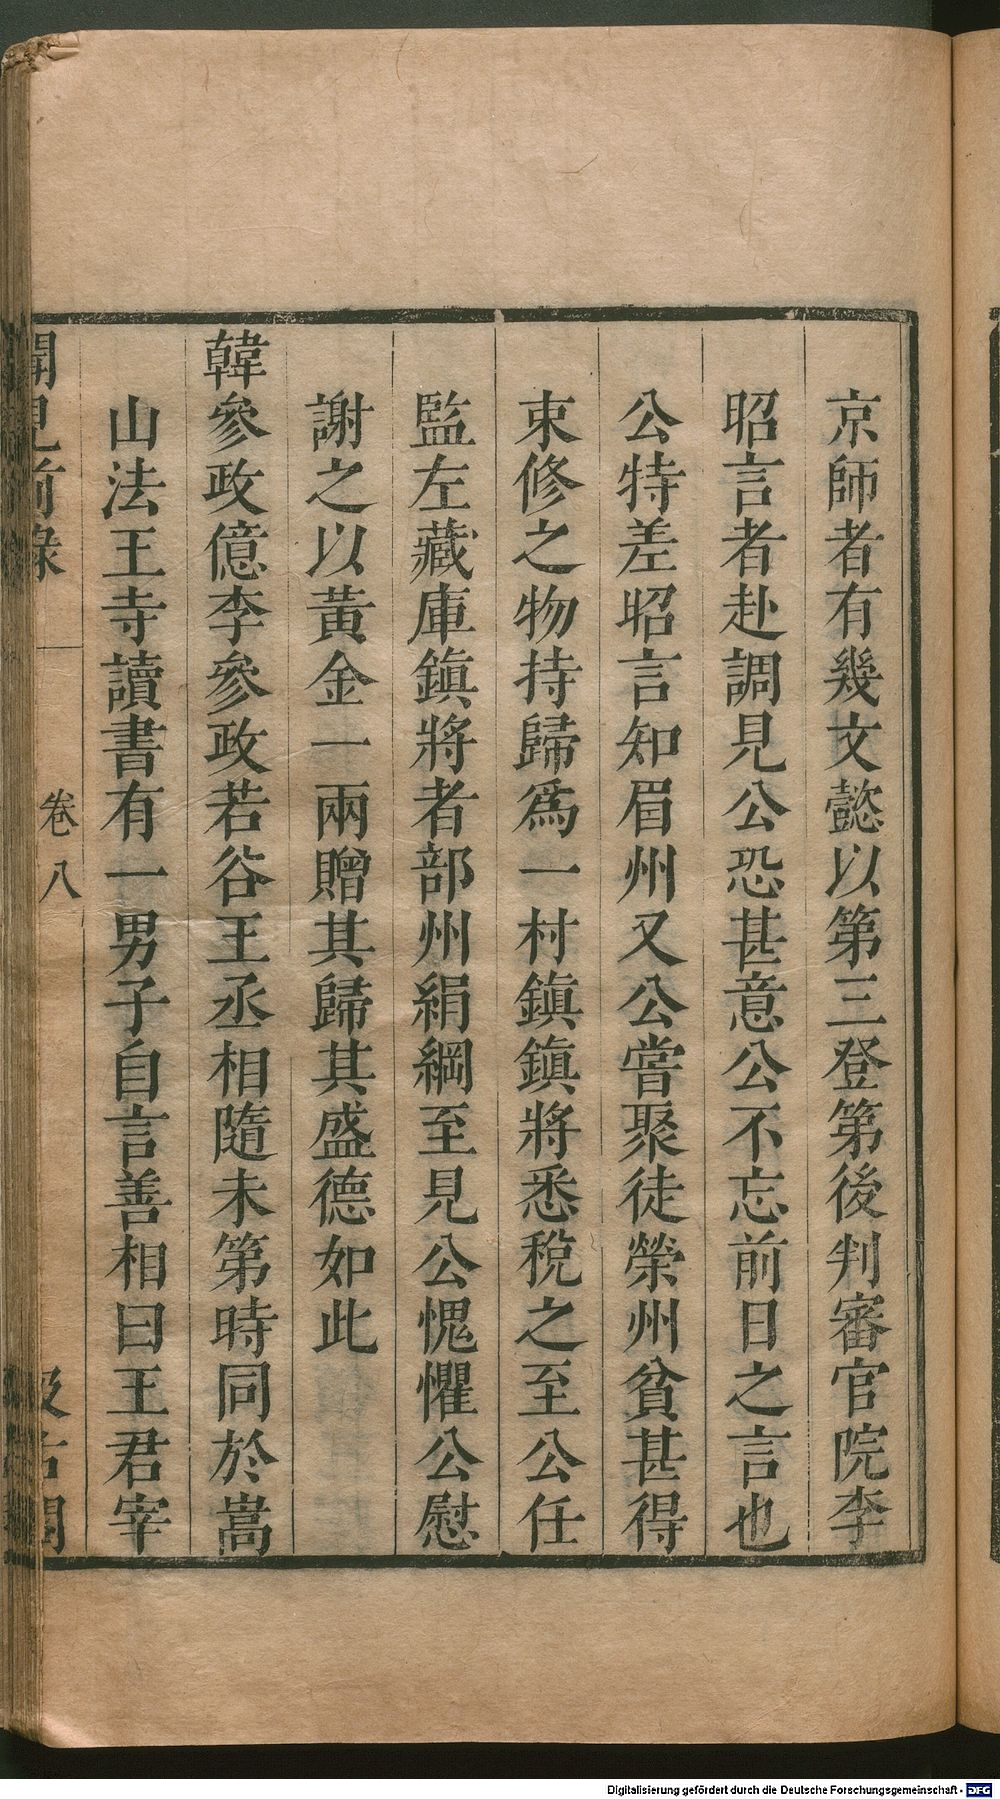 京師者有幾文懿以第三登第後判審官院李
昭言者赴調見公恐甚意公不忘前日之言也
公特差昭言知眉州又公嘗聚徒榮州貧甚得
束修之物持歸爲一村鎮鎮將悉稅之至公任
監左藏庫鎮將者部州絹綱至見公愧懼公慰
謝之以黃金一兩贈其歸其盛德如此
韓參政億李參政若谷王丞相隨未第時同於嵩
山法王寺讀書有一男子自言善相曰王君宰
聞見前錄
卷八
汲古閣
Digitalisierung gefördert durch die Deutsche Forschungsgemeinschaft - DFG